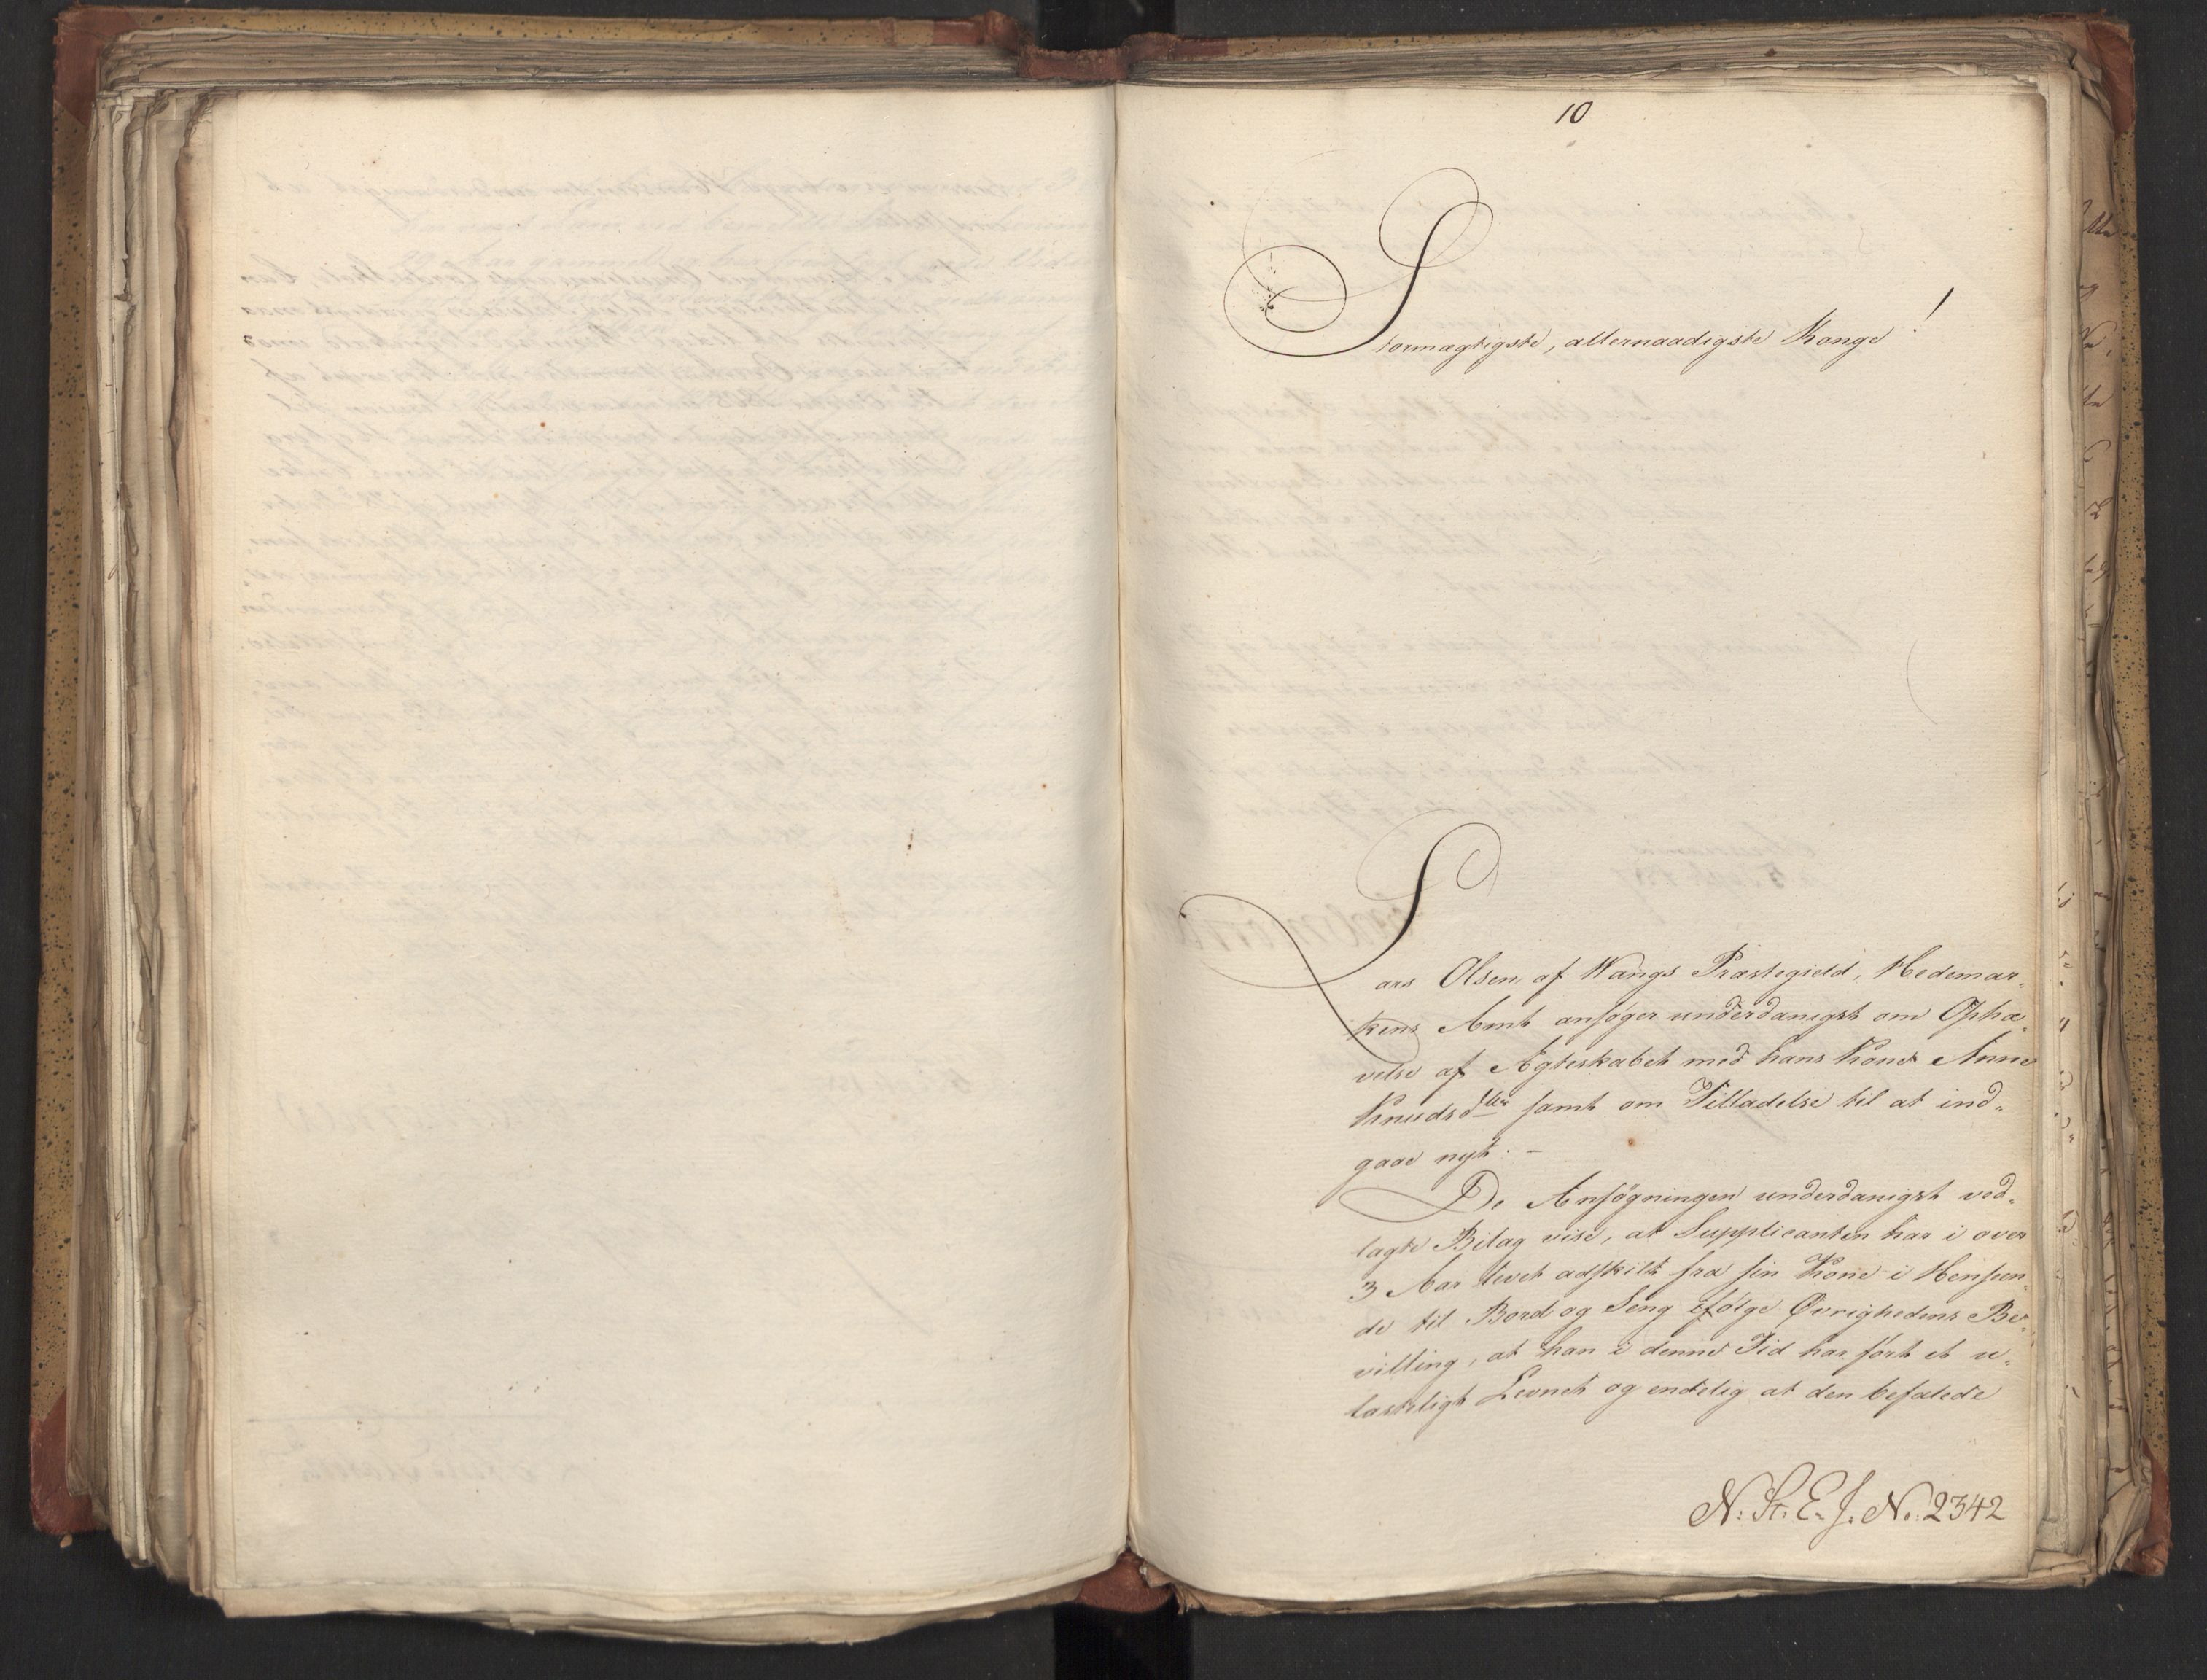 10
Stormægtigste, allernaadigste Konge!
Lars Olsen, af Wangs Præstegield, Hedemar„
kens Amt ansøger underdanigst om Ophæ„
velse af Ægteskabet med hans Kone Anne
Knudsdtter samt om Tilladelse til at ind„
gaae nyt. –
De Ansøgningen underdanigst ved„
lagte Bilag vise, at Supplicanten har i over
3 Aar levet adskilt fra sin Kone i Henseen„
de til Bord og Seng ifølge Øvrighedens Be„
villing, at han i denne Tid har ført et u„
lasteligt Levnet og endelig at den befalede
N. St. E. J. No. 2342